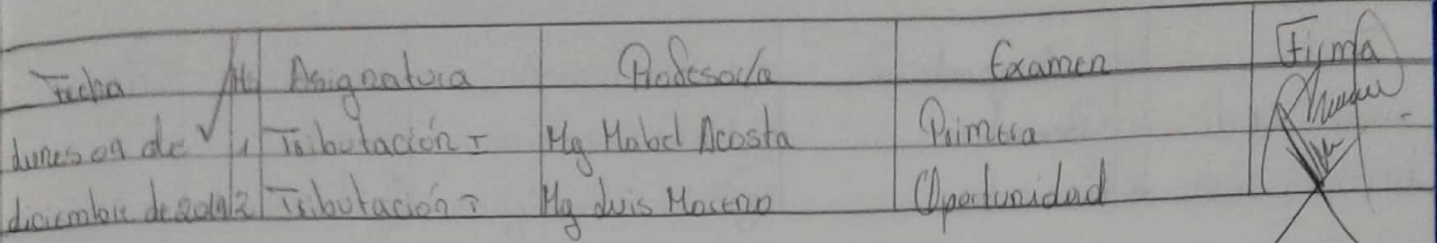 Fecha Asignatura Profesor/a Examen Firma
Lunes 09 de 1 Tributación I Mg Mabel Acosta Primera
diciembre de 2019 2 Tributación I Mg Luis Moreno Oportunidad